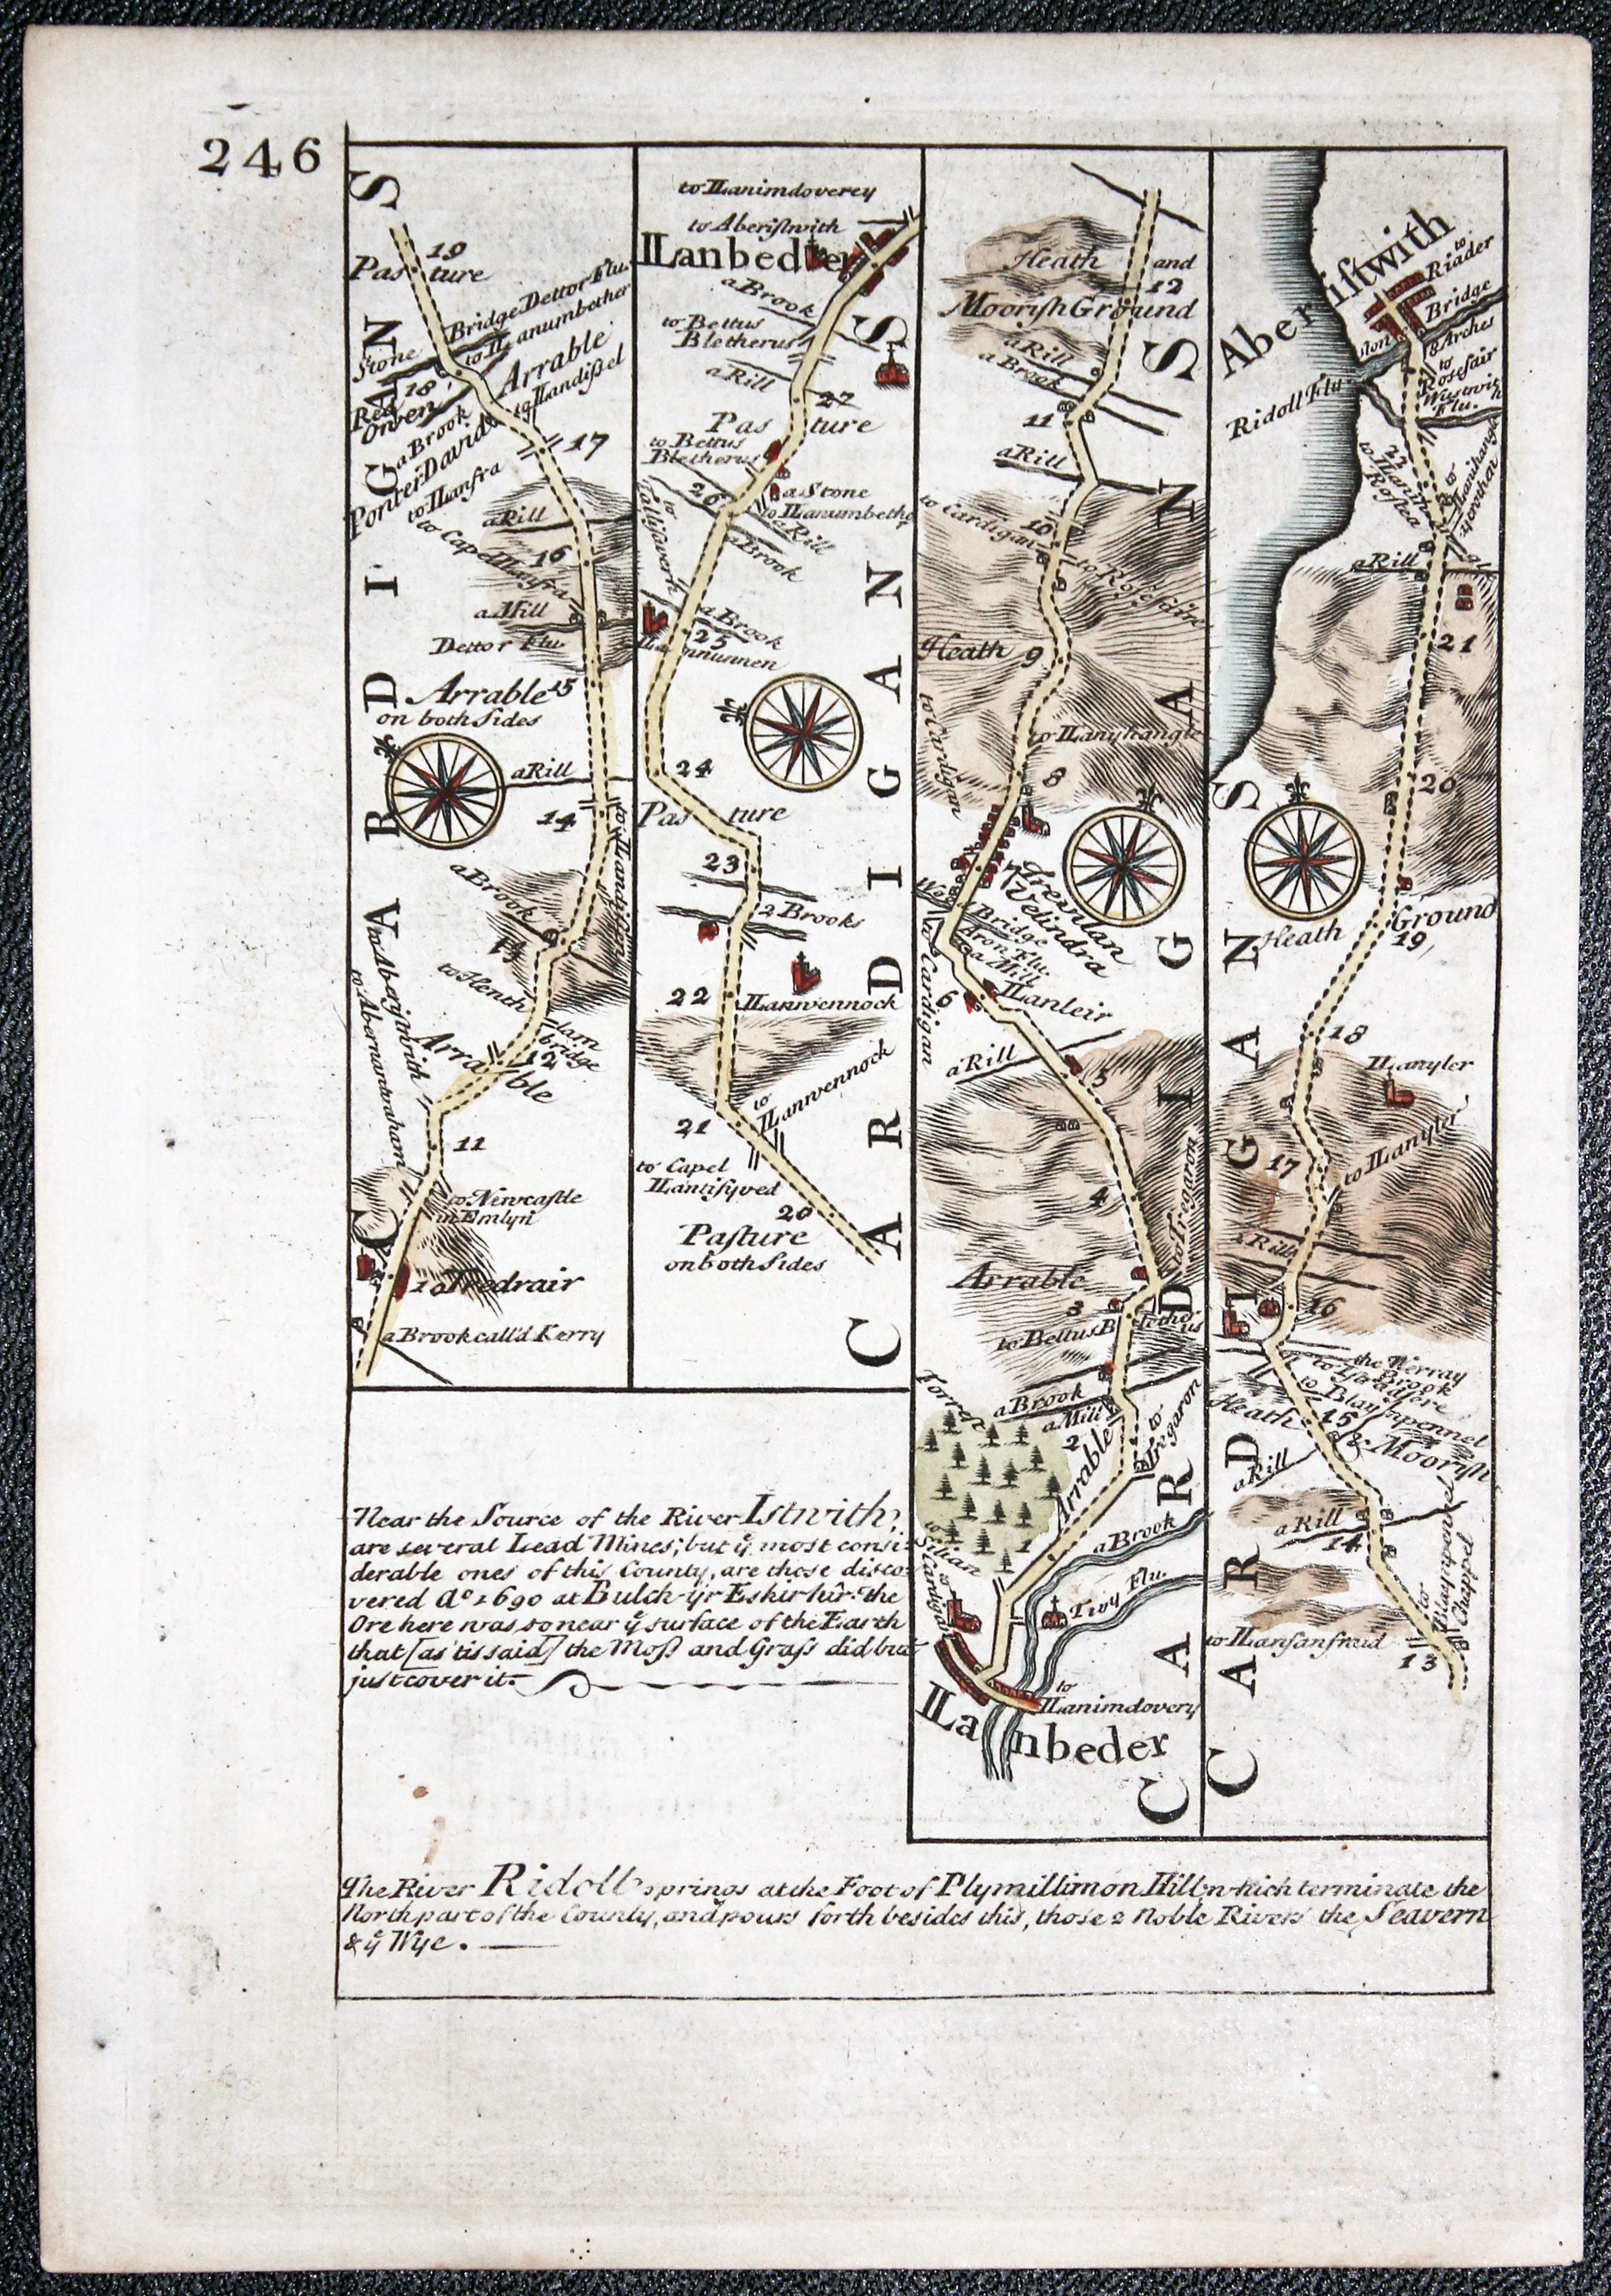 246
CARDIGANS
Pas ture
19
Bridge Dettor Flu.
to LLanumbether
Stone
18
Arrable
to LLandissel
a Brook
17
Ponter David
to LLanfra
a Rill
to Capel LLanfra
16
a Mill
Dettor Flu.
Arrable
15
on both Sides
a Rill
14
a Brook
13
to Henth
lam bridge
12
Arra ble
to Aberistwith
11
to Newcastle
in Emlyn
10
Tredrair
a Brook call'd Kerry
to LLanimdoverey
to Aberistwith
LLanbeder
a Brook
to Bettus
Bletherus
a Rill
27
Pas ture
to Bettus
Bletherus
26
a Stone
to LLanumbether
a Rill
a Brook
a Brook
25
24
Pas ture
23
2 Brooks
22
LLanwennock
to LLanwennock
21
to Capel
LLantisyved
20
Pasture
on both Sides
CARDIGANS
Heath and
12
Moorish Ground
a Rill
a Brook
11
a Rill
to Cardigan
10
to Rosefaire
Heath
9
to LLanyhangle
to Cardigan
8
Trevilan
Velindra
Bridge
Aron Flu.
a Mill
to Cardigan
6
LLanleir
a Rill
5
4
to Tregaron
Arrable
3
to Bettus Bletherus
Forrest
a Brook
a Mill
2
Arrable
to Tregaron
1
a Brook
to Silian
to Cardigan
Tivy Flu.
to LLanimdovery
LLanbeder
CARDIGANS
Aberistwith
to Riader
Bridge
8 Arches
to Rosefair
Ridoll Flu.
22
a Rill
21
20
Heath Ground
19
18
LLanyler
17
to LLanyler
2 Rills
16
the Werray
Brook
Heath
15
& Moorish
a Rill
a Rill
14
to Blaenpenal
Chappel
to LLansanfraid
13
CARDIGANS
Near the Source of the River Istwith,
are several Lead Mines; but yͤ most consi-
derable ones of this County, are those disco-
vered Aº 1690 at Bulch-yr Eskir hir: the
Ore here was so near yͤ surface of the Earth
that [as 'tis said] the Moss and Grass did but
just cover it.
The River Ridoll springs at the Foot of Plymillimon Hill which terminate the
North part of the County, and pours forth besides this, those 2 Noble Rivers the Seavern
& yͤ Wye.